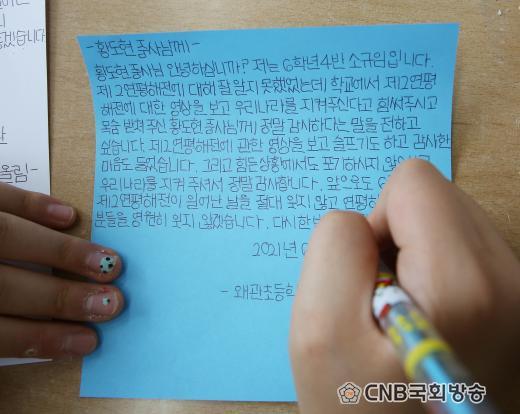 -황도현 중사님께-
황도현 중사님 안녕하십니까? 저는 6학년 4반 소규임입니다.
제 2연평해전에 대해 잘 알지 못했었는데 학교에서 제2연평
해전에 대한 영상을 보고 우리나라를 지켜주신다고 힘써주시고
목숨 받쳐주신 황도현 중사님께 정말 감사하다는 말을 전하고
싶습니다. 제2연평해전에 관한 영상을 보고 슬프기도 하고 감사한
마음도 들었습니다. 그리고 힘든상황에서도 포기하시지
우리나라를 지켜 주셔서 정말 감사합니다. 앞으로도
제2연평해전이 일어난 날을 절대 잊지 않고
분들을 영원히 잊지 않겠습니다. 다시한번
2021년
-왜관초등학
올림-
CNB국회방송